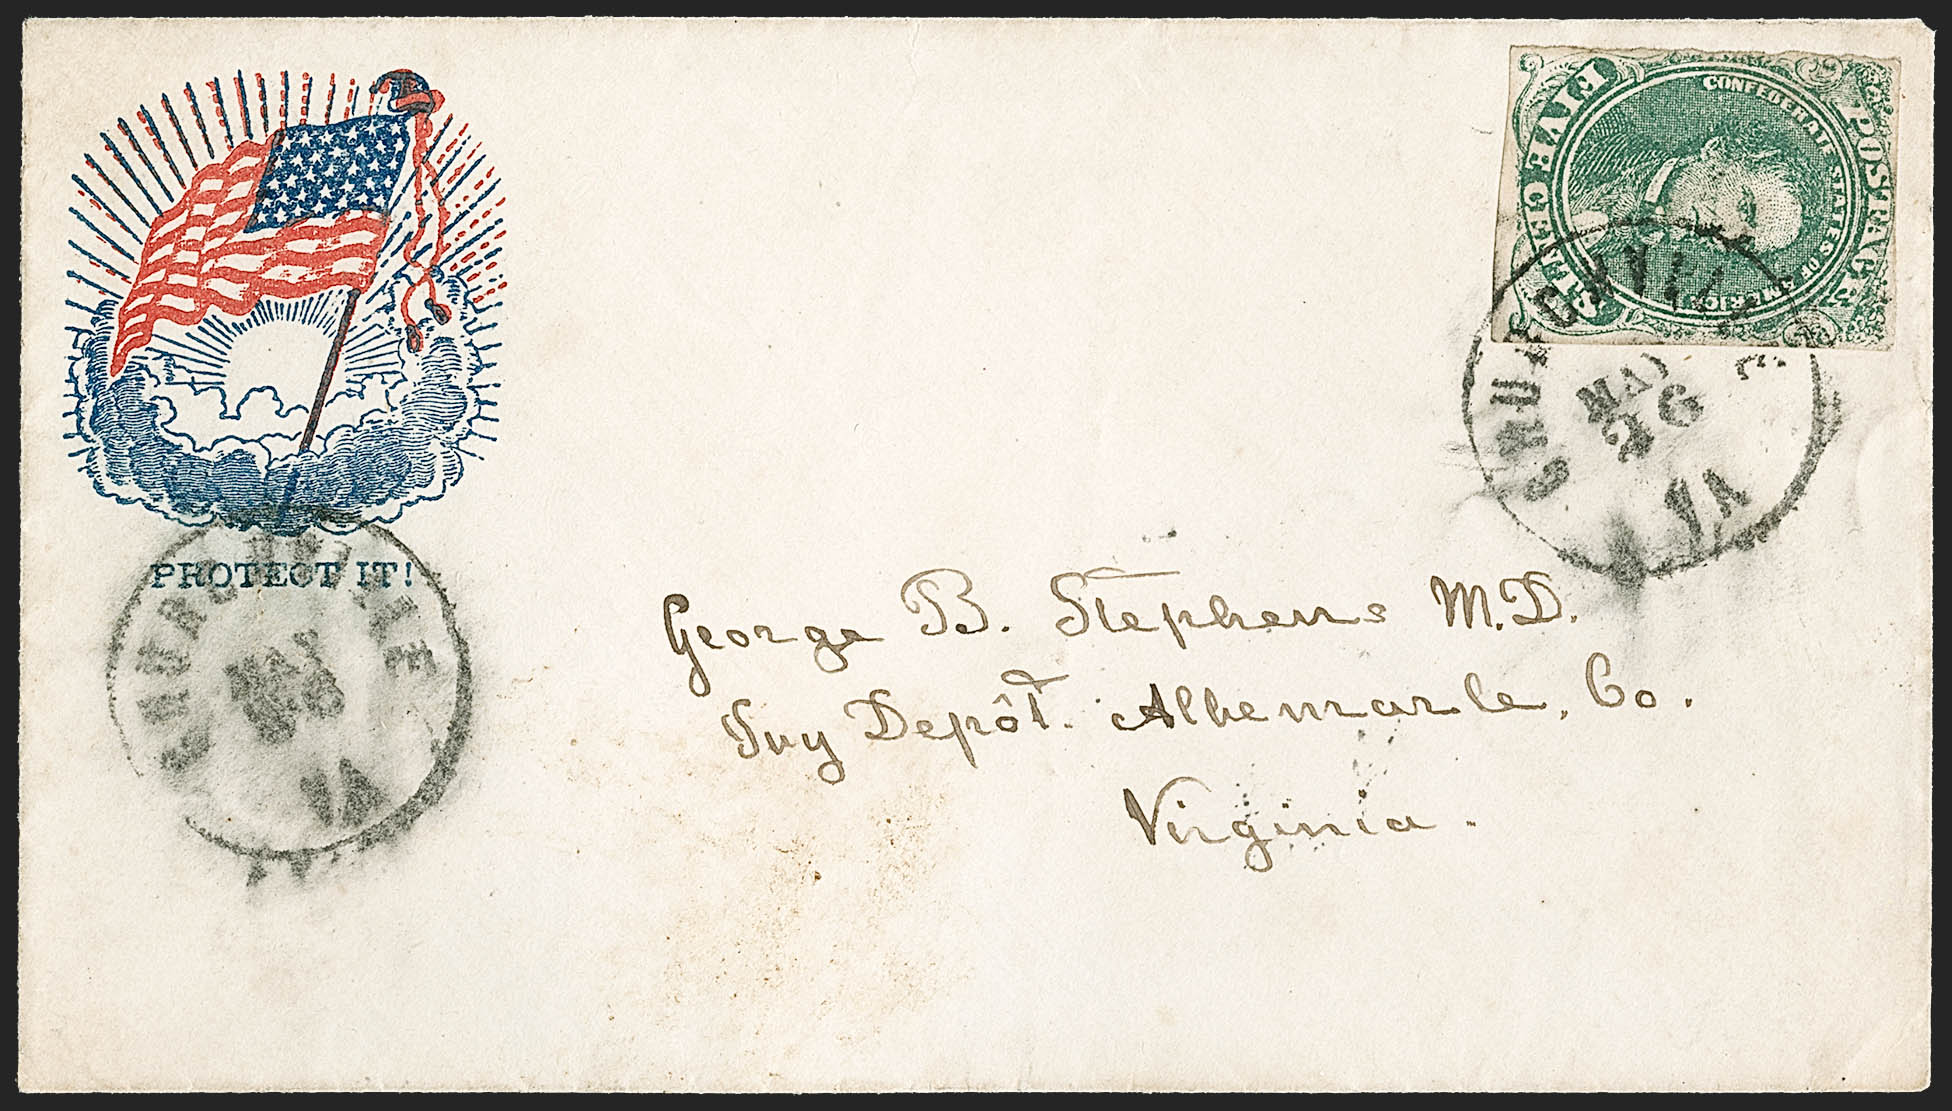 PROTECT IT!
FIVE CENTS
CONFEDERATE STATES OF AMERICA
POSTAGE
MAY
26
VA
MAY
26
VA
George B. Stephens M.D.
Ivy Depôt. Albemarle. Co.
Virginia.